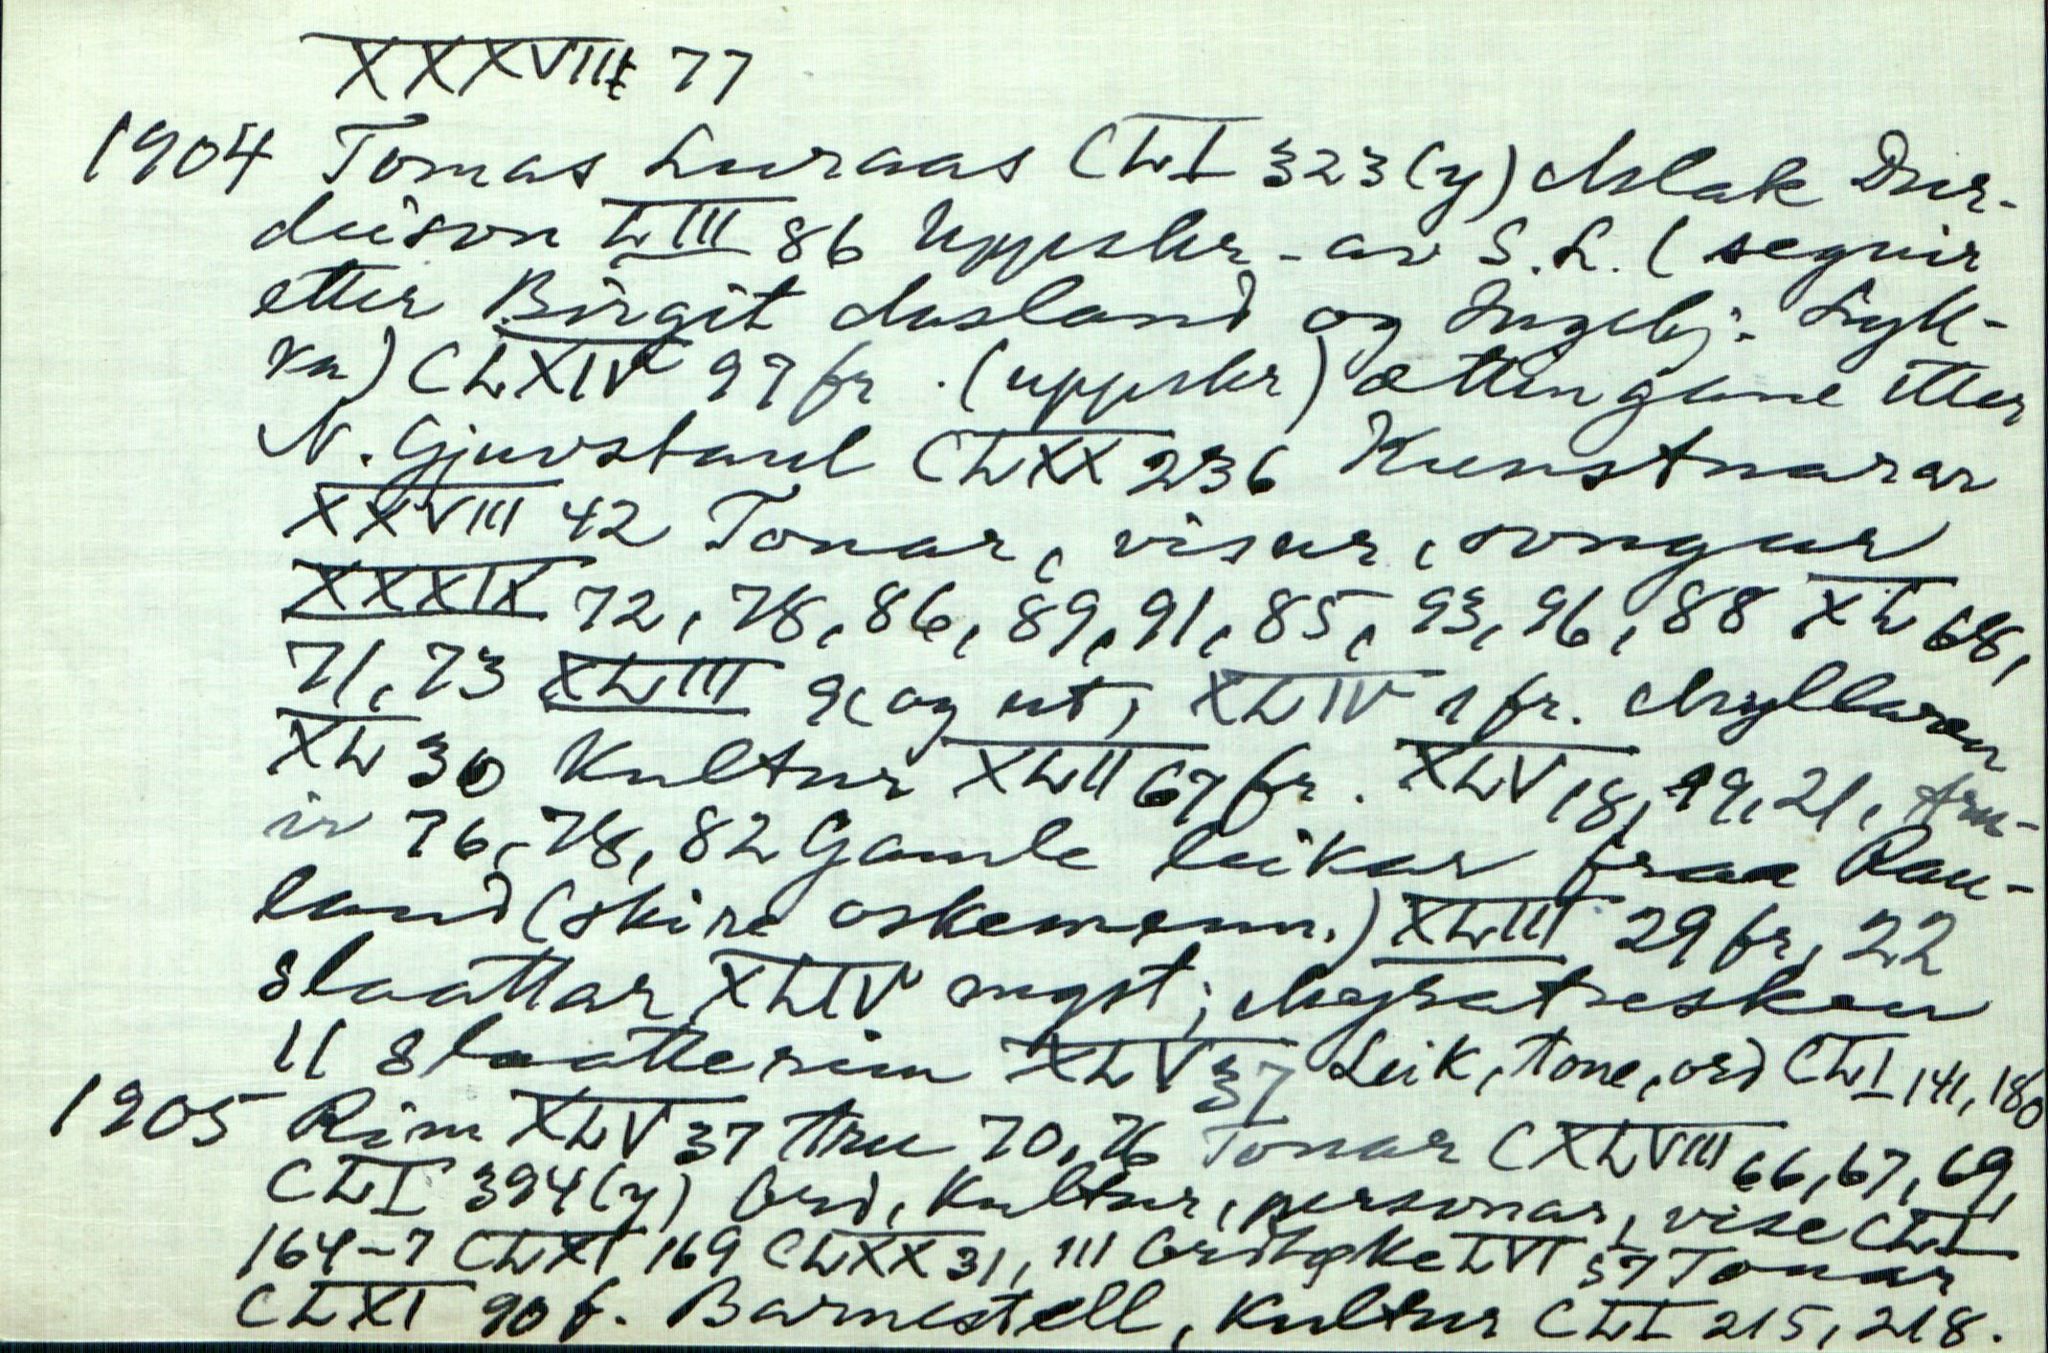 XXXVIII 77
1904 Tomas Luraas CLI 323 (y) Aslak Dur-
deison LIII 86 Uppskr. av S.L. (segner
etter Birgit Aasland og Ingebj. Lyk-
ra) CLXIV 99 fr. (uppskr) ættingane etter
N. Gjuvstaul CLXX 236 Kunstnarar
XXVIII 42 Tonar, visur, songar
XXXIX 72, 78, 86, 89, 91, 85, 93, 96, 88 XL 68,
71, 73 XLIII 9 (og ut) XLIV 1 fr. Myllaren
XL 30 Kultur XLII 67 fr. XLV 18, 19, 21,
76, 78, 82 Gamle leikar fraa Rau-
land (skire oskemenn.) XLIII 29 fr, 22
slaattar XLIV mgst; Myratresken
11 slaatterim XLV 37 Leik, tone, ord CLI 141, 180
1905 Rim XLV 37 tru 70, 76 Tonar CXLVIII 66, 67, 69,
CLI 394 (y) Ord, kultur, personar, vise CLI
164-7 CLXI 169 CLXX 31, 111 Ordtøke LVI 57 Tonar
CLXI 90 f. Barnestell, kultur CLI 215, 218.